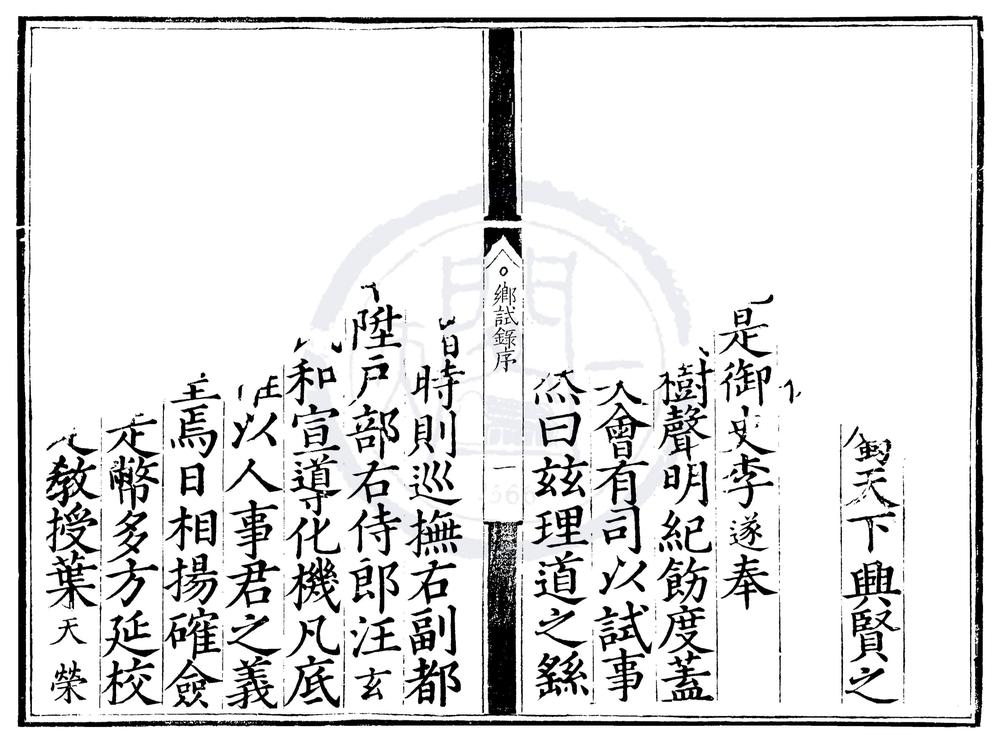 天下興賢之
是御史李遂奉
樹聲明紀飭度蓋
會有司以試事
然曰茲理道之繇
鄉試錄序
一
時則巡撫右副都
陞戶部右侍郎汪玄
和宣導化機凡底
以人事君之義
焉日相揚確僉
走幣多方延校
教授葉天榮